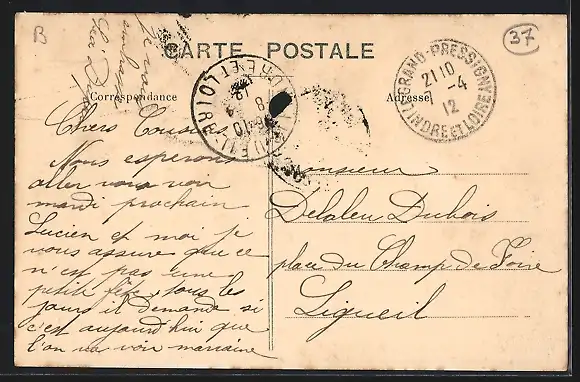 B
37
Je vous
embrasse
CARTE POSTALE
Correspondance
Adresse
INDRE ET LOIRE
GRAND-PRESSIGNY
21 10
-4
12
INDRE ET LOIRE
Chers Cousins
Nous espérons
aller vous voir
mardi prochain
Lucien et moi je
vous assure que ce
n'est pas une
petite fête, tous les
jours il demande si
c'est aujourd'hui que
l'on va voir marraine
Monsieur
Delaleu Dubois
place du Champ de Foire
Ligueil